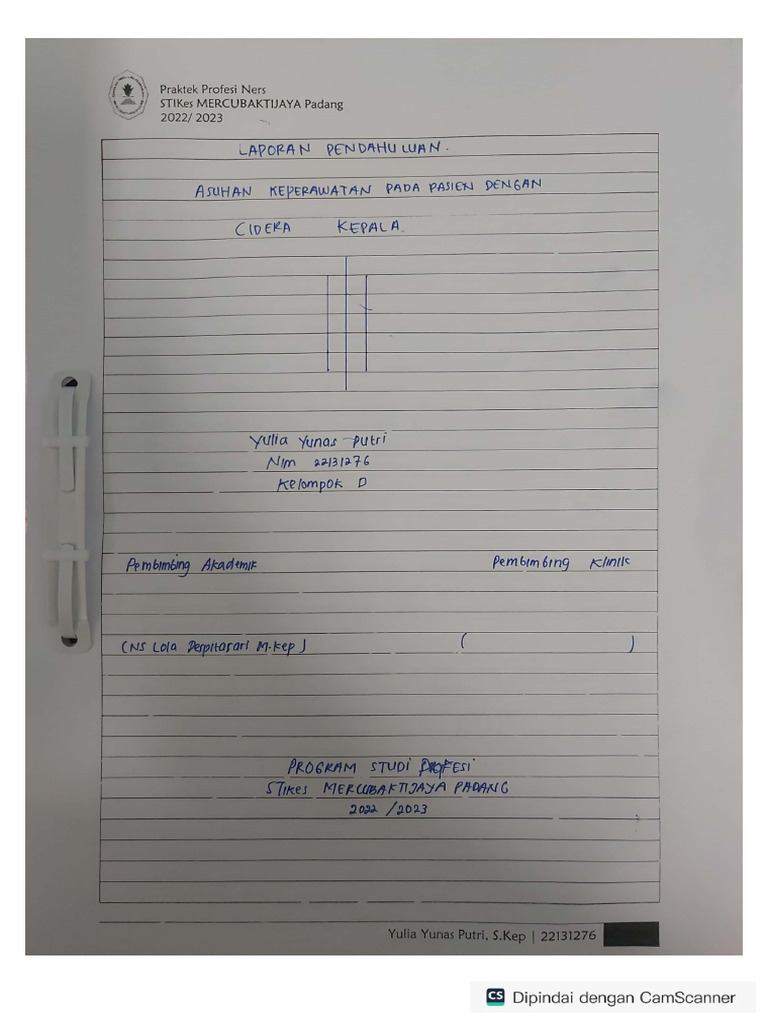 Praktek Profesi Ners
STIKes MERCUBAKTIJAYA Padang
2022/ 2023
LAPORAN PENDAHULUAN.
ASUHAN KEPERAWATAN PADA PASIEN DENGAN
CIDERA KEPALA.
Yulia Yunas Putri
Nim 22131276
Kelompok D
Pembimbing Akademik Pembimbing Klinik
(NS Lola Despitasari M.Kep) ( )
PROGRAM STUDI PROFESI
STIKes MERCUBAKTIJAYA PADANG
2022 /2023
Yulia Yunas Putri, S.Kep | 22131276
CS Dipindai dengan CamScanner